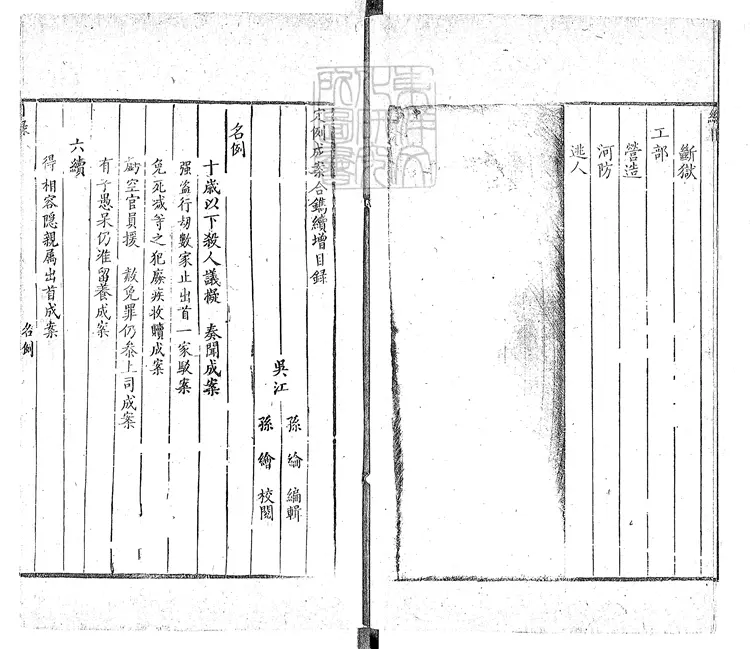 斷獄
工部
營造
河防
逃人
定例成案合鐫續增目錄
吳江
孫綸編輯
孫繪校閱
名例
十歲以下殺人議擬 奏聞成案
强盗行刧數家止出首一家駁案
免死減等之犯廢疾收贖成案
虧空官員援 赦免罪仍叅上司成案
有子愚呆仍准留養成案
六續
得相容隱親属出首成案
名例